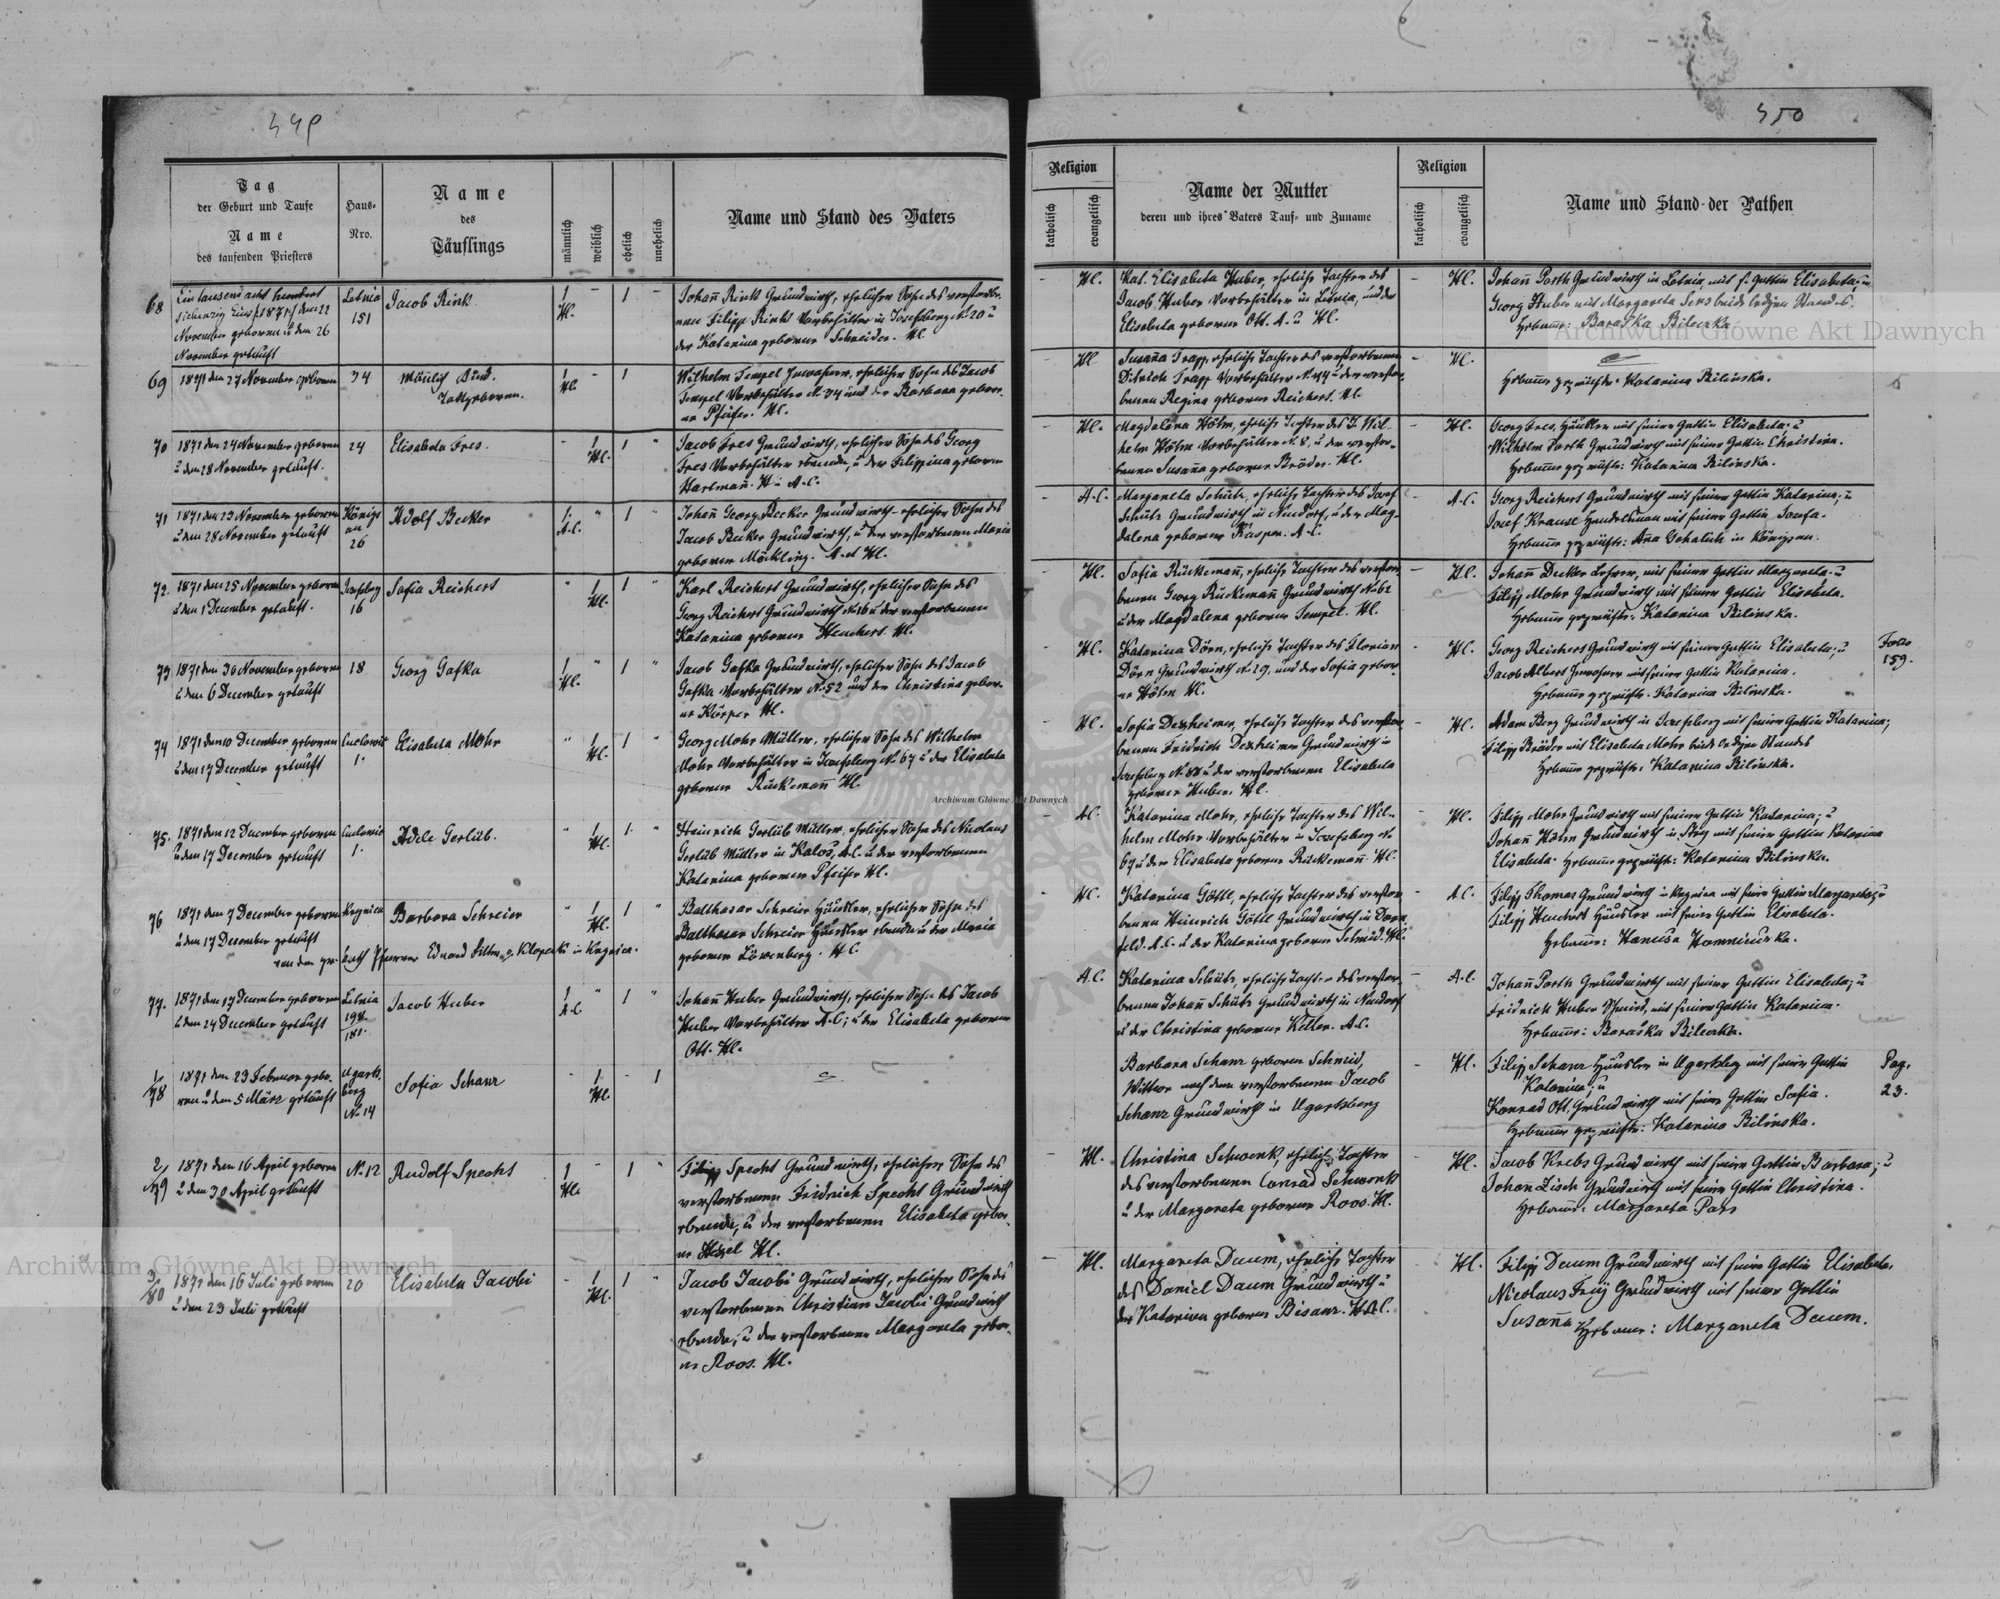 449
Tag
der Geburt und Taufe
Name
des taufenden Priesters
Haus-
Nro.
Name
des
Täuflings
männlich
weiblich
ehelich
unehelich
Name und Stand des Vaters
68
Ein tausend acht hundert
siebenzig Eins /:1871:/ den 22
November geboren u den 26
November getauft
Letnia
151
Jacob Rink
1
Hl.
1
Johañ Rink Grundwirth, ehelicher Sohn des verstorbe-
nen Filipp Rink Vorbehälter in Josefsberg N. 20 u
der Katarina geborene Schneider. Hl.
69
1871 den 27 November geboren
34
Mänlich Kind.
Todtgeboren.
1
Hl.
1
Wilhelm Tempel Inwohner, ehelicher Sohn des Jacob
Tempel Vorbehälter N. 34 und der Barbara gebore-
ne Pfeifer. Hl.
70
1871 den 24 November geboren
u den 28 November getauft.
24
Elisabeta Fres.
1
Hl.
1
Jacob Fres Grundwirth, ehelicher Sohn des Georg
Fres Vorbehälter ebenda, u der Filippina geborene
Hartmañ. H u A.C.
71
1871 den 23 November geboren
u den 28 November getauft
Königs
au
26
Adolf Becker
1.
A.C.
1
Johañ Georg Becker Grundwirth ehelicher Sohn des
Jacob Becker Grundwirth, u der verstorbenen Maria
geborene Möckling. A. et Hl.
72.
1871 den 25 November geboren
u den 1 December getauft.
Josefsberg
16
Sofia Reichert
1
Hl.
1
Karl Reichert Grundwirth, ehelicher Sohn des
Georg Reichert Grundwirth N. 16 u der verstorbenen
Katarina geborene Heuchert. Hl.
73
1871 den 30 November geboren
u den 6 December getauft
18
Georg Gafka
1
Hl.
1
Jacob Gafka Grundwirth, ehelicher Sohn des Jacob
Gafka Vorbehälter N. 52 und der Christina gebor-
ne Klörper Hl.
74
1871 den 10 December geboren
u den 17 December getauft
1.
Elisabeta Mohr
1
Hl.
1
Georg Mohr Müller, ehelicher Sohn des Wilhelm
Mohr Vorbehälter in Josefsberg N. 67 u der Elisabeta
geborene Rückemañ Hl.
75.
1871 den 12 December geboren
u den 17 December getauft
1.
Adele Gerlüb.
1
Hl.
1.
Heinrich Gerlüb Müller, ehelicher Sohn des Nicolaus
Gerlüb Müller in Kalos, A.C. u der verstorbenen
Katarina geborene Pfeifer Hl.
76
1871 den 7 December geboren
u den 17 December getauft
Krynica
Barbara Schreier
1
Hl.
1
von dem gr. kath Pfarrer Eduard Klopecki in Krynica.
Balthasar Schreier Häusler, ehelicher Sohn des
Balthasar Schreier Häusler ebenda u der Maria
geborene Löwenberg. H.C.
77.
1871 den 17 December geboren
u den 24 December getauft
Letnia
198
181.
Jacob Huber
1
A.C.
1
Johañ Huber Grundwirth, ehelicher Sohn des Jacob
Huber Vorbehälter A.C; u der Elisabeta geborene
Ott. Hl.
1/78
1871 den 23 Februar gebo-
ren u den 5 März getauft
Ugarts
berg
N. 14
Sofia Schanz
1
Hl.
1
2/79
1871 den 16 April geboren
u den 30 April getauft
N. 12
Rudolf Specht
1
Hl.
1
Filipp Specht Grundwirth, ehelicher Sohn des
verstorbenen Fridrich Specht Grundwirth
ebenda, u der verstorbenen Elisabeta gebor-
ne Hl.
3/80
1871 den 16 Juli geboren
u den 23 Juli getauft
20
Elisabeta Jacobi
1
Hl.
1
Jacob Jacobi Grundwirth, ehelicher Sohn des
verstorbenen Christian Jacobi Grundwirth
ebenda, u der verstorbenen Margareta gebor-
ne Roos. Hl.
450
Religion
katholisch
evangelisch
Name der Mutter
deren und ihres Vaters Tauf- und Zuname
Religion
katholisch
evangelisch
Name und Stand der Pathen
Hl.
Kat. Elisabeta Huber, eheliche Tochter des
Jacob Huber Vorbehälter in Letnia, und der
Elisabeta geborene Ott. A. u Hl.
Hl.
Johañ Porth Grundwirth in Letnia, mit s. Gattin Elisabeta; u
Georg Huber mit Margareta beide ledigen Standes.
Hebame: Baraśka Bilecka
Hl
Susaña Trapp eheliche Tochter des verstorbenen
Ditrich Trapp Vorbehälter N. 44 u der verstor-
benen Regina geborene Reichert. Hl.
Hl.
Hebame geprüfte: Katarina Bilinska.
Hl.
Magdalena Höhn, eheliche Tochter des J. Wil-
helm Höhn Vorbehälter N. 8, u der verstor-
benen Susaña geborene Bröder. Hl.
Hl.
Georg Fres, Häusler mit seiner Gattin Elisabeta. u
Wilhelm Porth Grundwirth mit seiner Gattin Christina.
Hebame geprüfte: Katarina Bilinska.
A.C.
Margareta Schütz, eheliche Tochter des Josef
Schütz Grundwirth in Neudorf, u der Mag-
dalena geborene Kasper. A.C.
A.C.
Georg Reichert Grundwirth mit seiner Gattin Katarina; u
Josef Krause Handelsman mit seiner Gattin Josefa.
Hebame geprüfte: Aña in Königsau.
Hl.
Sofia Rückemañ, eheliche Tochter des verstor-
benen Georg Rückemañ Grundwirth N. 62
u der Magdalena geborene Tempel. Hl.
Hl.
Johañ Decker Lehrer, mit seiner Gattin Margareta. u
Filipp Mohr Grundwirth mit seiner Gattin Elisabeta.
Hebame geprüfte: Katarina Bilinska.
Hl.
Katarina Dörn, eheliche Tochter des Florian
Dörn Grundwirth N. 29, und der Sofia gebor-
ne Höhn Hl.
Hl.
Georg Reichert Grundwirth mit seiner Gattin Elisabeta; u
Jacob Albert Inwohner mit seiner Gattin Katarina.
Hebame geprüfte. Katarina Bilinska.
Folio
159.
Hl.
Sofia Dexheimer, eheliche Tochter des verstor-
benen Fridrich Dexheimer Grundwirth in
Josefsberg N. 88 u der verstorbenen Elisabeta
geborene Huber. Hl.
Hl.
Adam Berg Grundwirth in Josefsberg mit seiner Gattin Katarina;
Filipp Bröder mit Elisabeta Mohr beide ledigen Standes
Hebame geprüfte: Katarina Bilinska.
A.C.
Katarina Mohr, eheliche Tochter des Wil-
helm Mohr Vorbehälter in Josefsberg N.
67 u der Elisabeta geborene Rückemañ. Hl.
Hl.
Filipp Mohr Grundwirth mit seiner Gattin Katarina; u
Johañ Höhn Grundwirth in Stryj mit seiner Gattin Katarina
Elisabeta. Hebame geprüfte: Katarina Bilinska.
Hl.
Katarina Göttl, eheliche Tochter des verstor-
benen Heinrich Göttl Grundwirth in Dorn-
feld. A.C. u der Katarina geborene Schmid. Hl.
A.C.
Filipp Thomas Grundwirth in Krynica mit seiner Gattin Margareta; u
Filipp Heuchert Häusler mit seiner Gattin Elisabeta.
Hebame: Hanuśa
A.C.
Katarina Schütz, eheliche Tochter des verstor-
benen Johañ Schütz Grundwirth in Neudorf
u der Christina geborene Keller. A.C.
A.C.
Johañ Porth Grundwirth mit seiner Gattin Elisabeta; u
Fridrich Huber Schmied, mit seiner Gattin Katarina.
Hebame: Baraśka Bilecka.
Barbara Schanz geborene Schmid,
Wittwe nach dem verstorbenen Jacob
Schanz Grundwirth in Ugartsberg
Hl.
Filipp Schanz Häusler in Ugartsberg mit seiner Gattin
Katarina; u
Konrad Ott, Grundwirth mit seiner Gattin Sofia.
Hebame geprüfte: Katarina Bilinska.
Pag.
23.
Hl.
Christina Schwenk, eheliche Tochter
des verstorbenen Conrad Schwenk
u der Margareta geborene Roos. Hl.
Hl.
Jacob Krebs Grundwirth mit seiner Gattin Barbara; u
Johañ Lisch Grundwirth mit seiner Gattin Christina.
Hebame: Margareta
Hl.
Margareta Daum, eheliche Tochter
des Daniel Daum Grundwirth u
der Katarina geborene Bisanz. H.A.C.
Hl.
Filipp Daum Grundwirth mit seiner Gattin Elisabeta,
Nicolaus Grundwirth mit seiner Gattin
Susaña Hebame: Margareta Daum.
Archiwum Główne Akt Dawnych
Archiwum Główne Akt Dawnych
Archiwum Główne Akt Dawnych